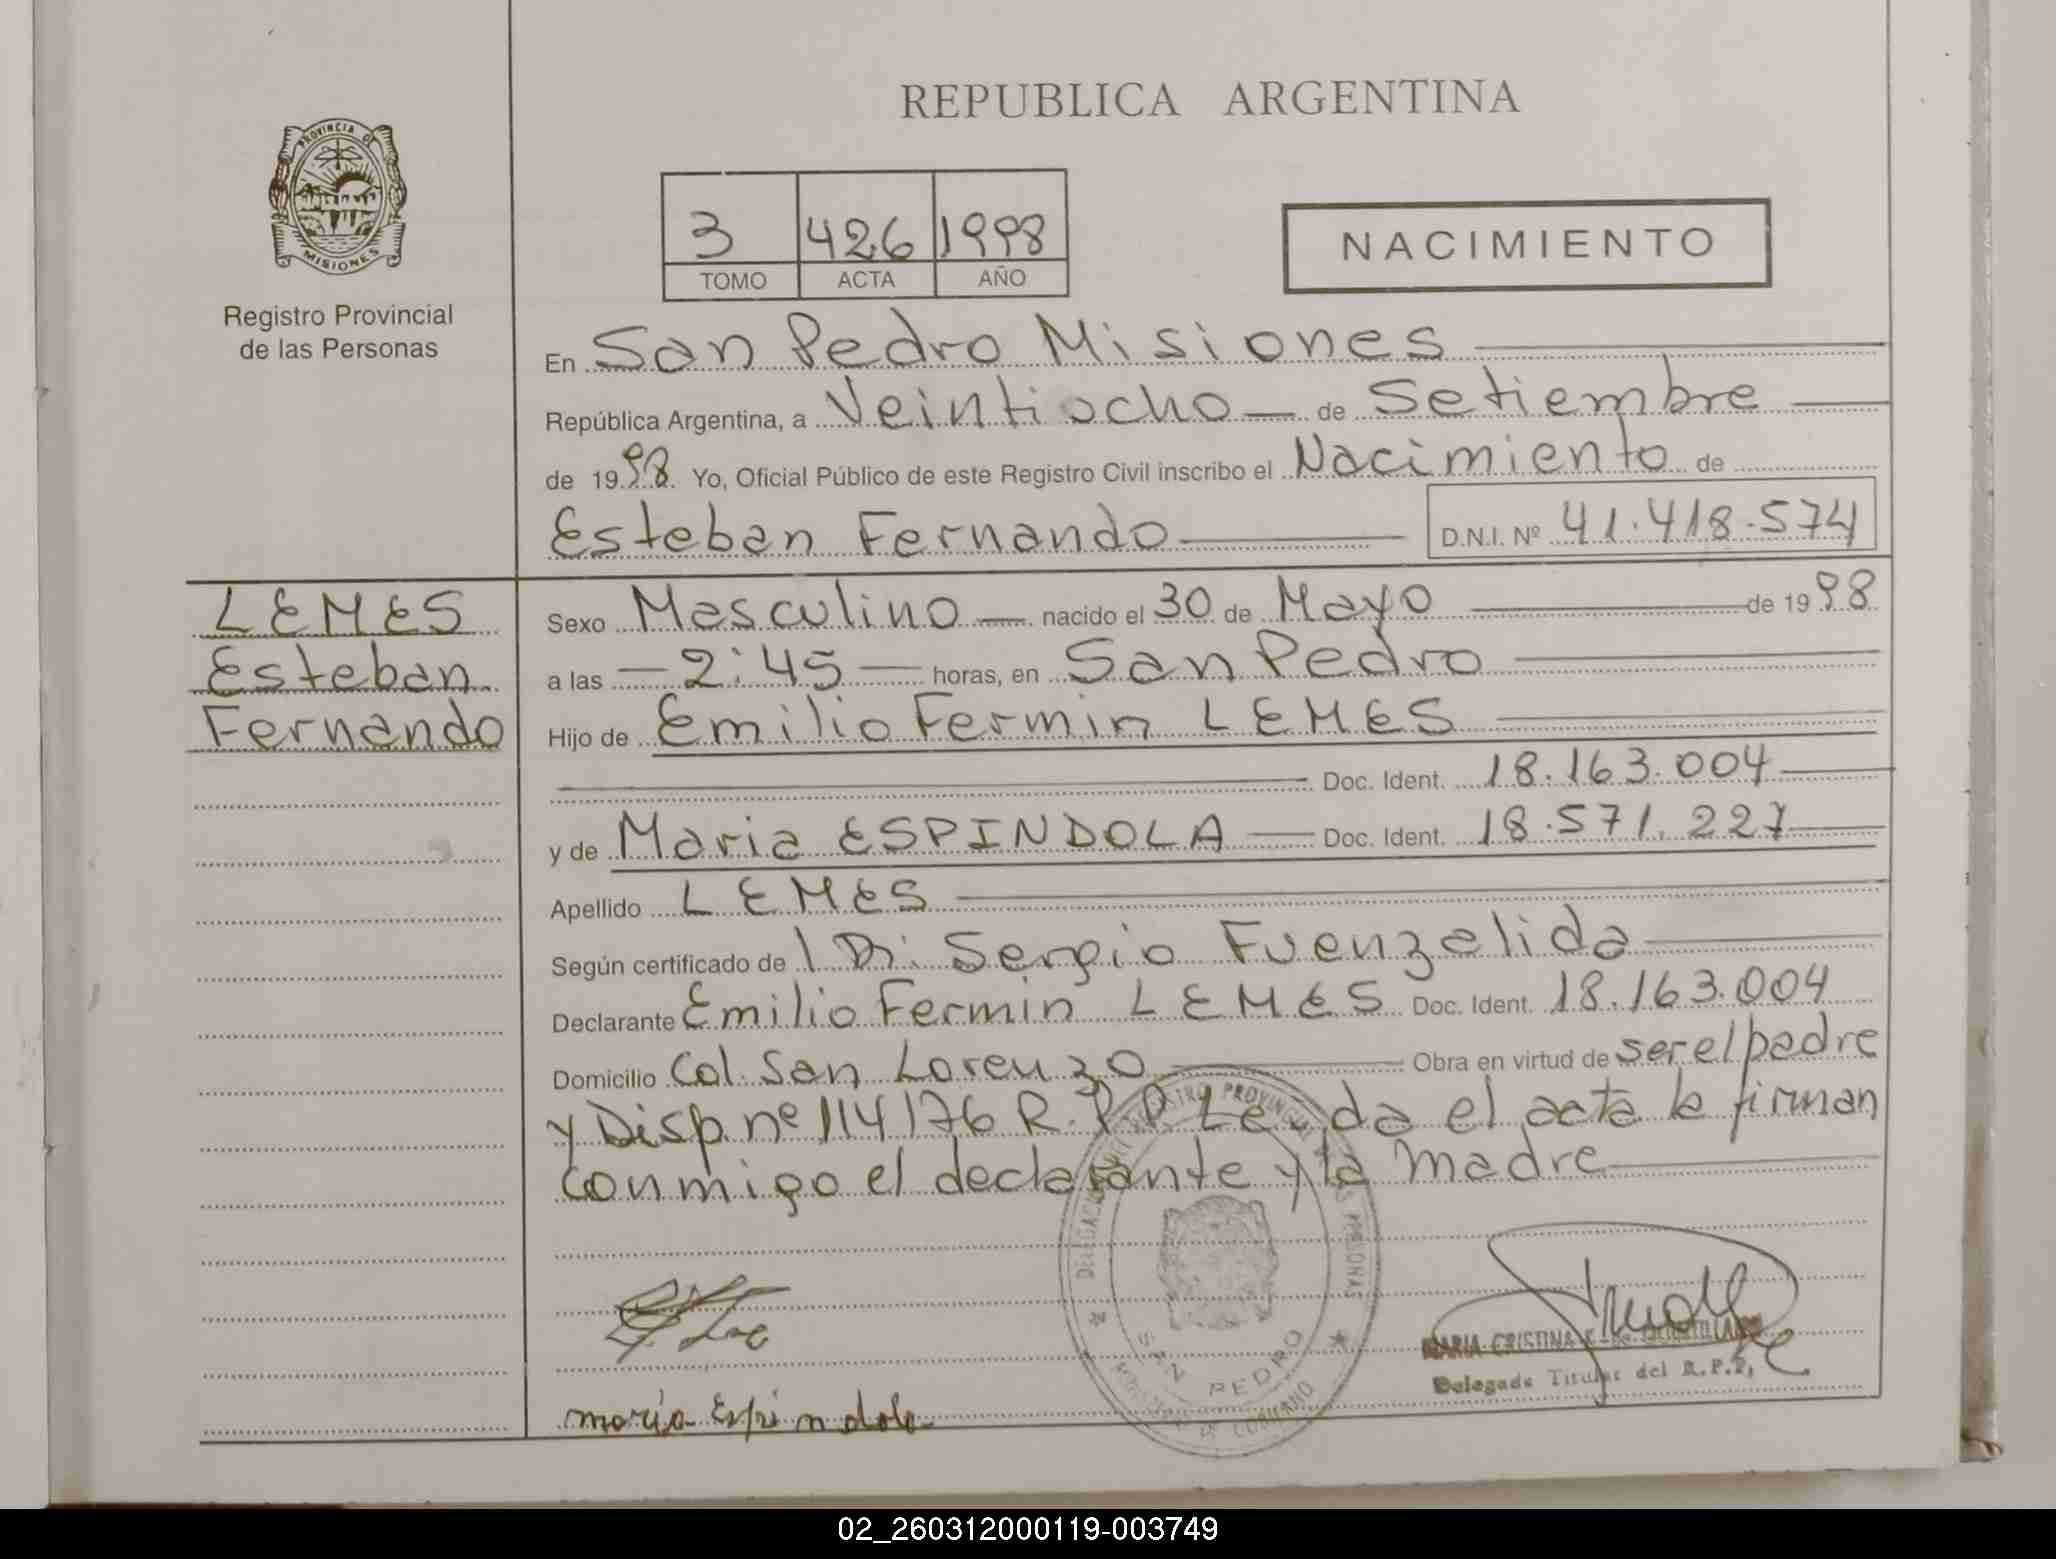 REPUBLICA ARGENTINA
PROVINCIA DE
MISIONES
Registro Provincial
de las Personas
3 426 1998
TOMO ACTA AÑO
NACIMIENTO
En San Pedro Misiones
República Argentina, a Veintiocho de Setiembre
de 1998 Yo, Oficial Público de este Registro Civil inscribo el Nacimiento de
Esteban Fernando D.N.I. Nº 41.418.574
LEMES
Esteban
Fernando
Sexo Masculino nacido el 30 de Mayo de 1998
a las 2:45 horas, en San Pedro
Hijo de Emilio Fermin LEMES
Doc. Ident. 18.163.004
y de Maria ESPINDOLA Doc. Ident. 18.571.227
Apellido LEMES
Según certificado de Sergio Fuenzalida
Declarante Emilio Fermin LEMES Doc. Ident. 18.163.004
Domicilio Col. San Lorenzo Obra en virtud de ser el padre
y Disp. nº 114/76 R.P.P. Leida el acta la firman
conmigo el declarante y la madre
REGISTRO PROVINCIAL DE LAS PERSONAS
SAN PEDRO
MARIA CRISTINA
Delegada Titular del R.P.P.
maria Espindola
02_260312000119-003749